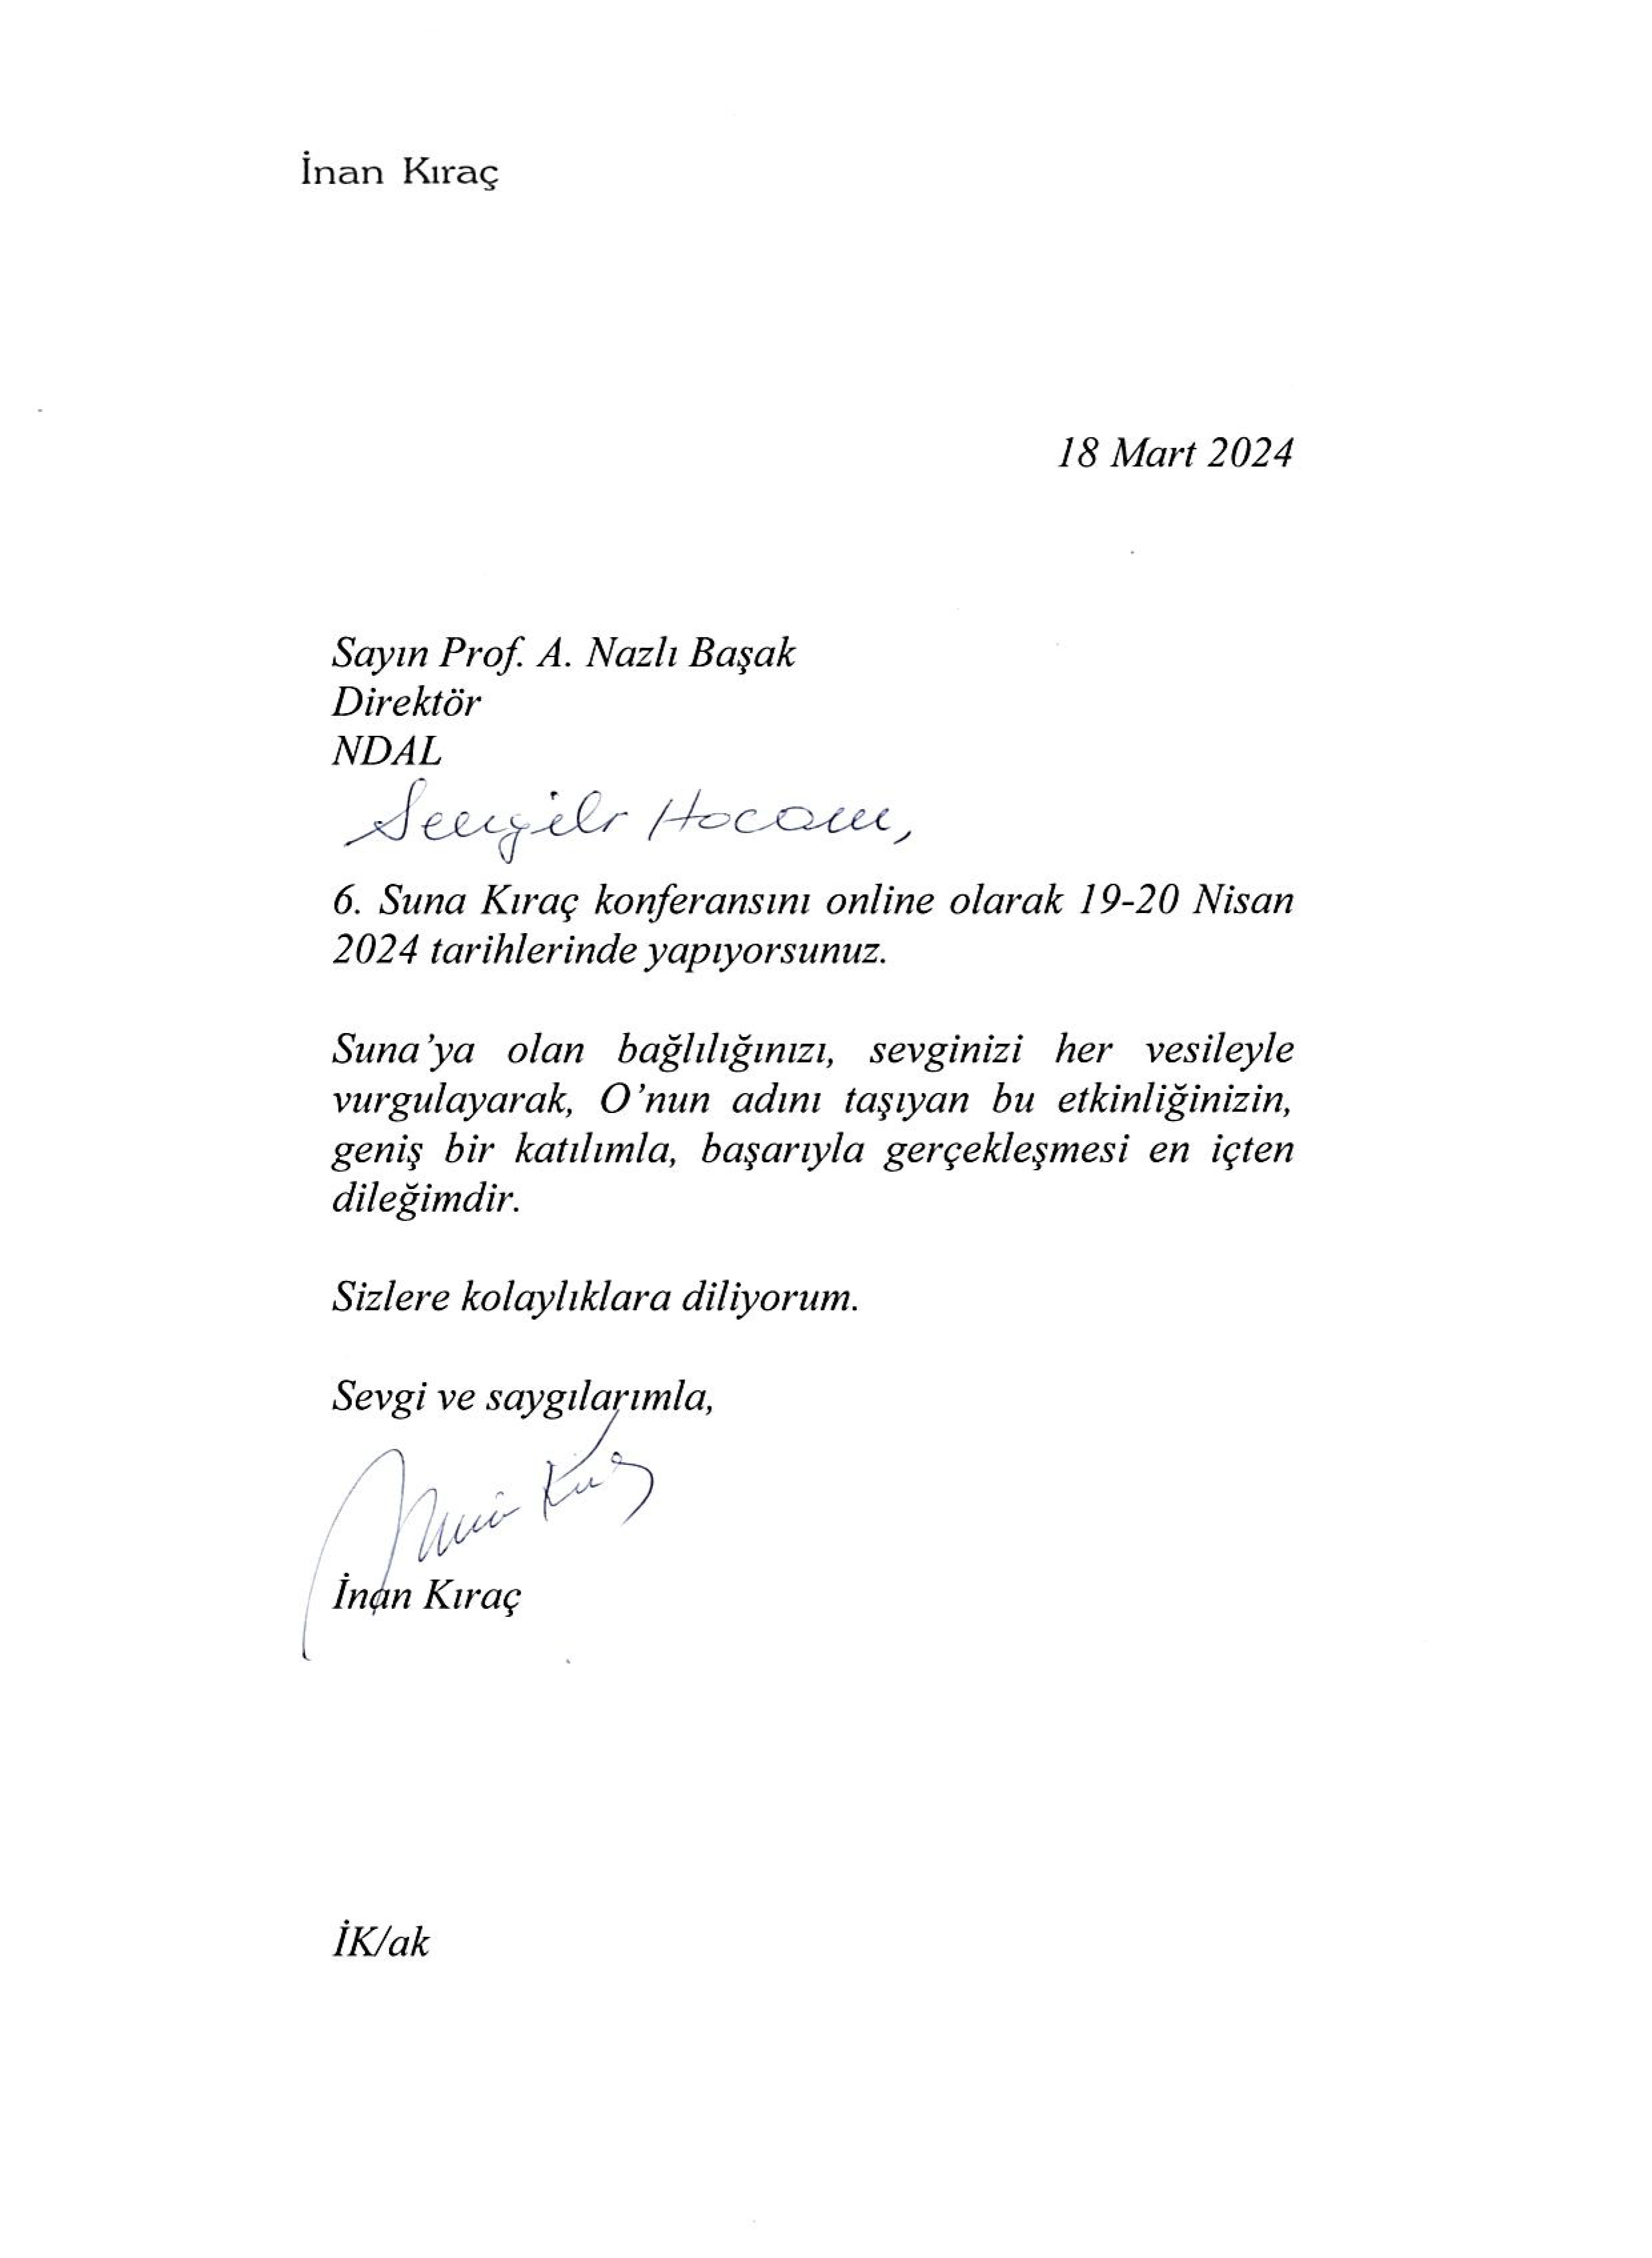 İnan Kıraç
18 Mart 2024
Sayın Prof. A. Nazlı Başak
Direktör
NDAL
Sevgili Hocam,
6. Suna Kıraç konferansını online olarak 19-20 Nisan
2024 tarihlerinde yapıyorsunuz.
Suna’ya olan bağlılığınızı, sevginizi her vesileyle
vurgulayarak, O’nun adını taşıyan bu etkinliğinizin,
geniş bir katılımla, başarıyla gerçekleşmesi en içten
dileğimdir.
Sizlere kolaylıklara diliyorum.
Sevgi ve saygılarımla,
İnan Kıraç
İnan Kıraç
İK/ak